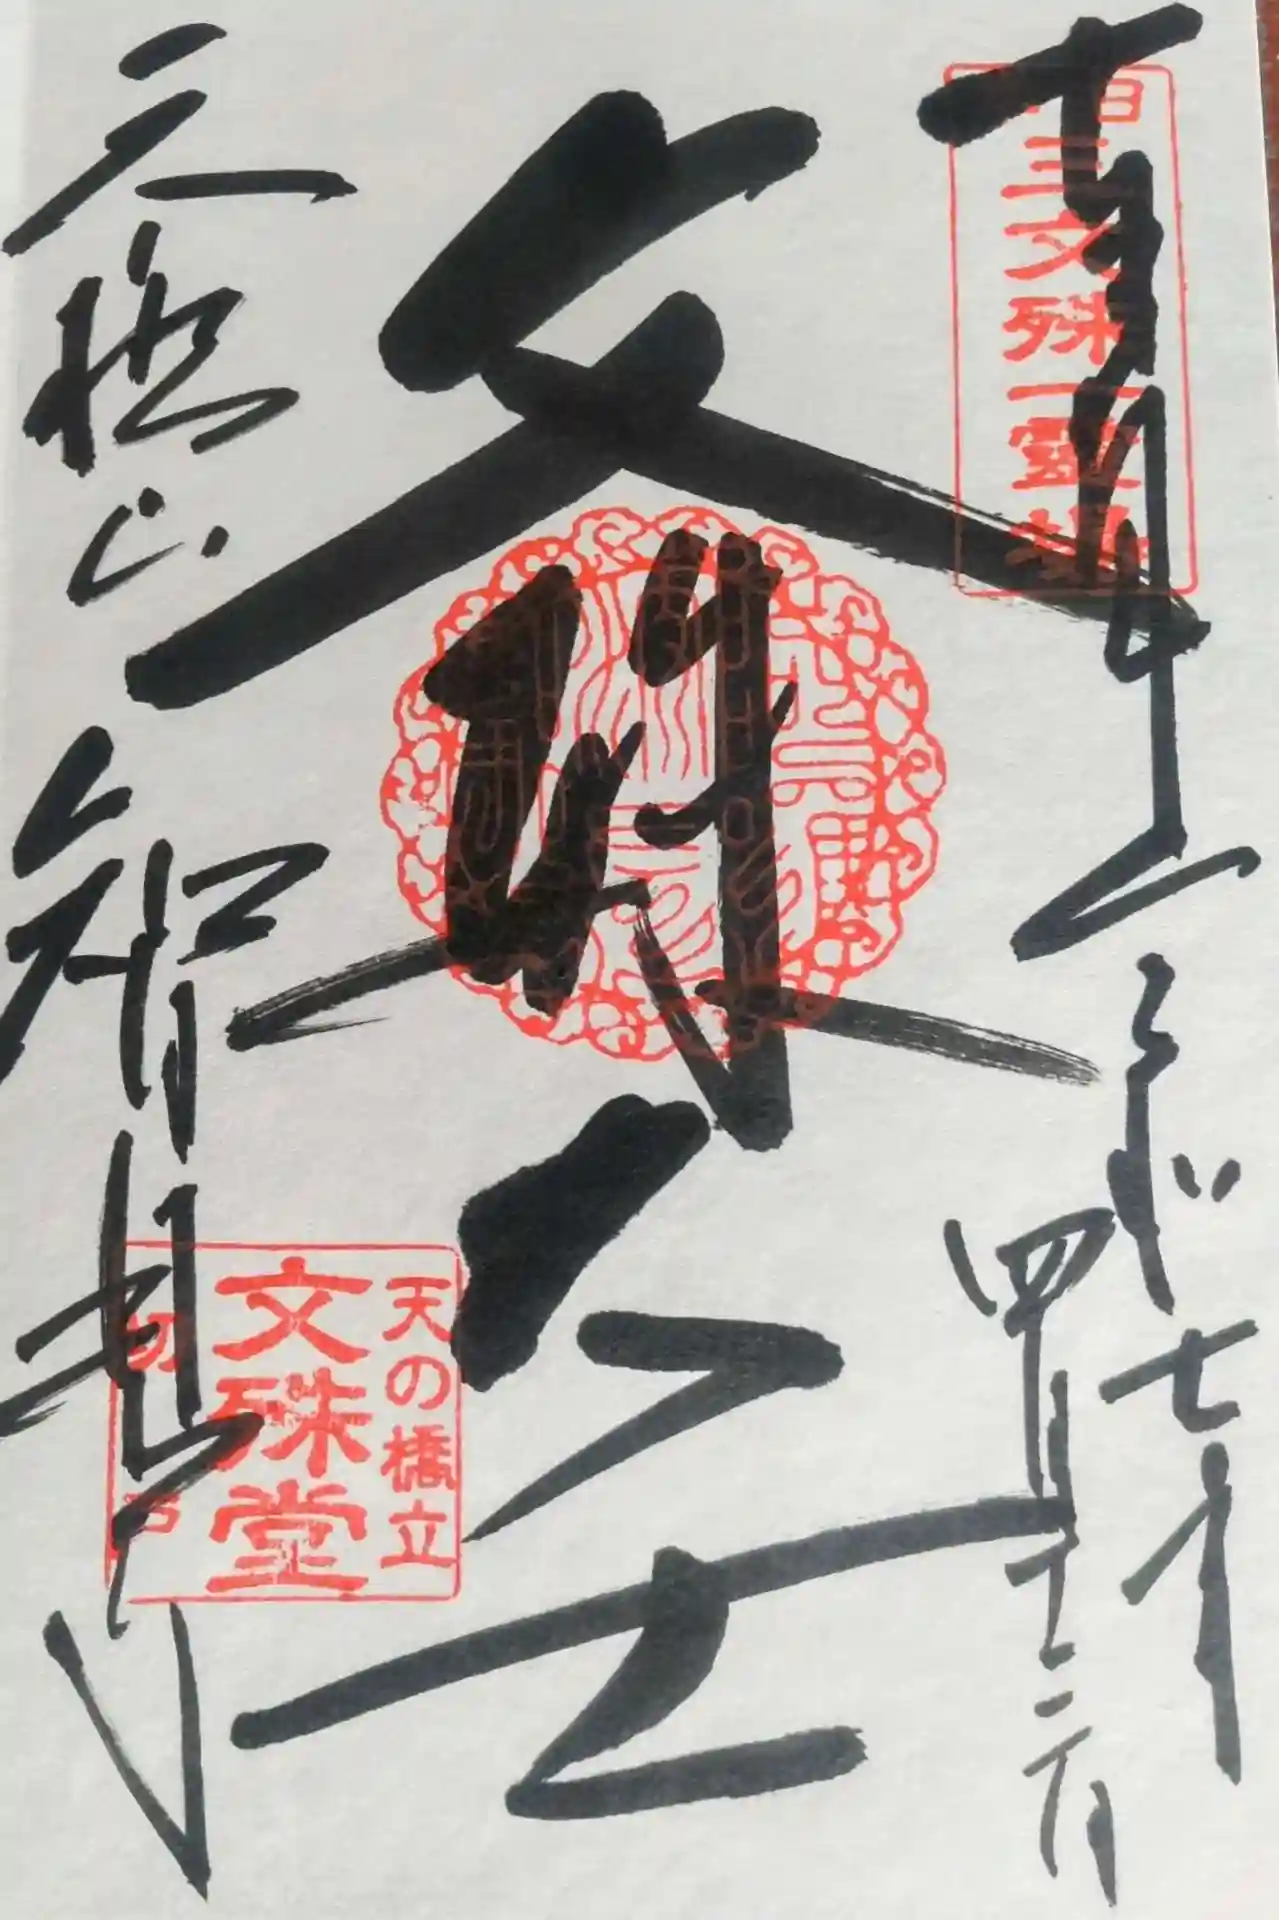 日本三文殊一霊場
奉拝
令和七年
四月十二日
文殊堂
天橋山
智恩寺
天の橋立
文殊堂
切戸